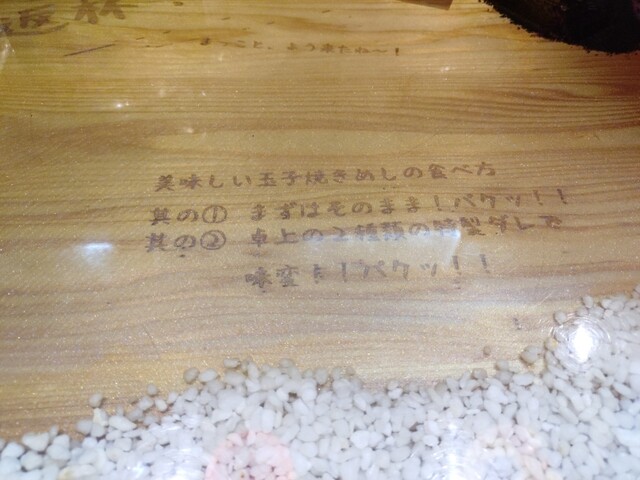 まっこと、よう来たね～！
美味しい玉子焼きめしの食べ方
其の① まずはそのまま！パクッ！！
其の② 卓上の2種類の特製ダレで
味変！！パクッ！！